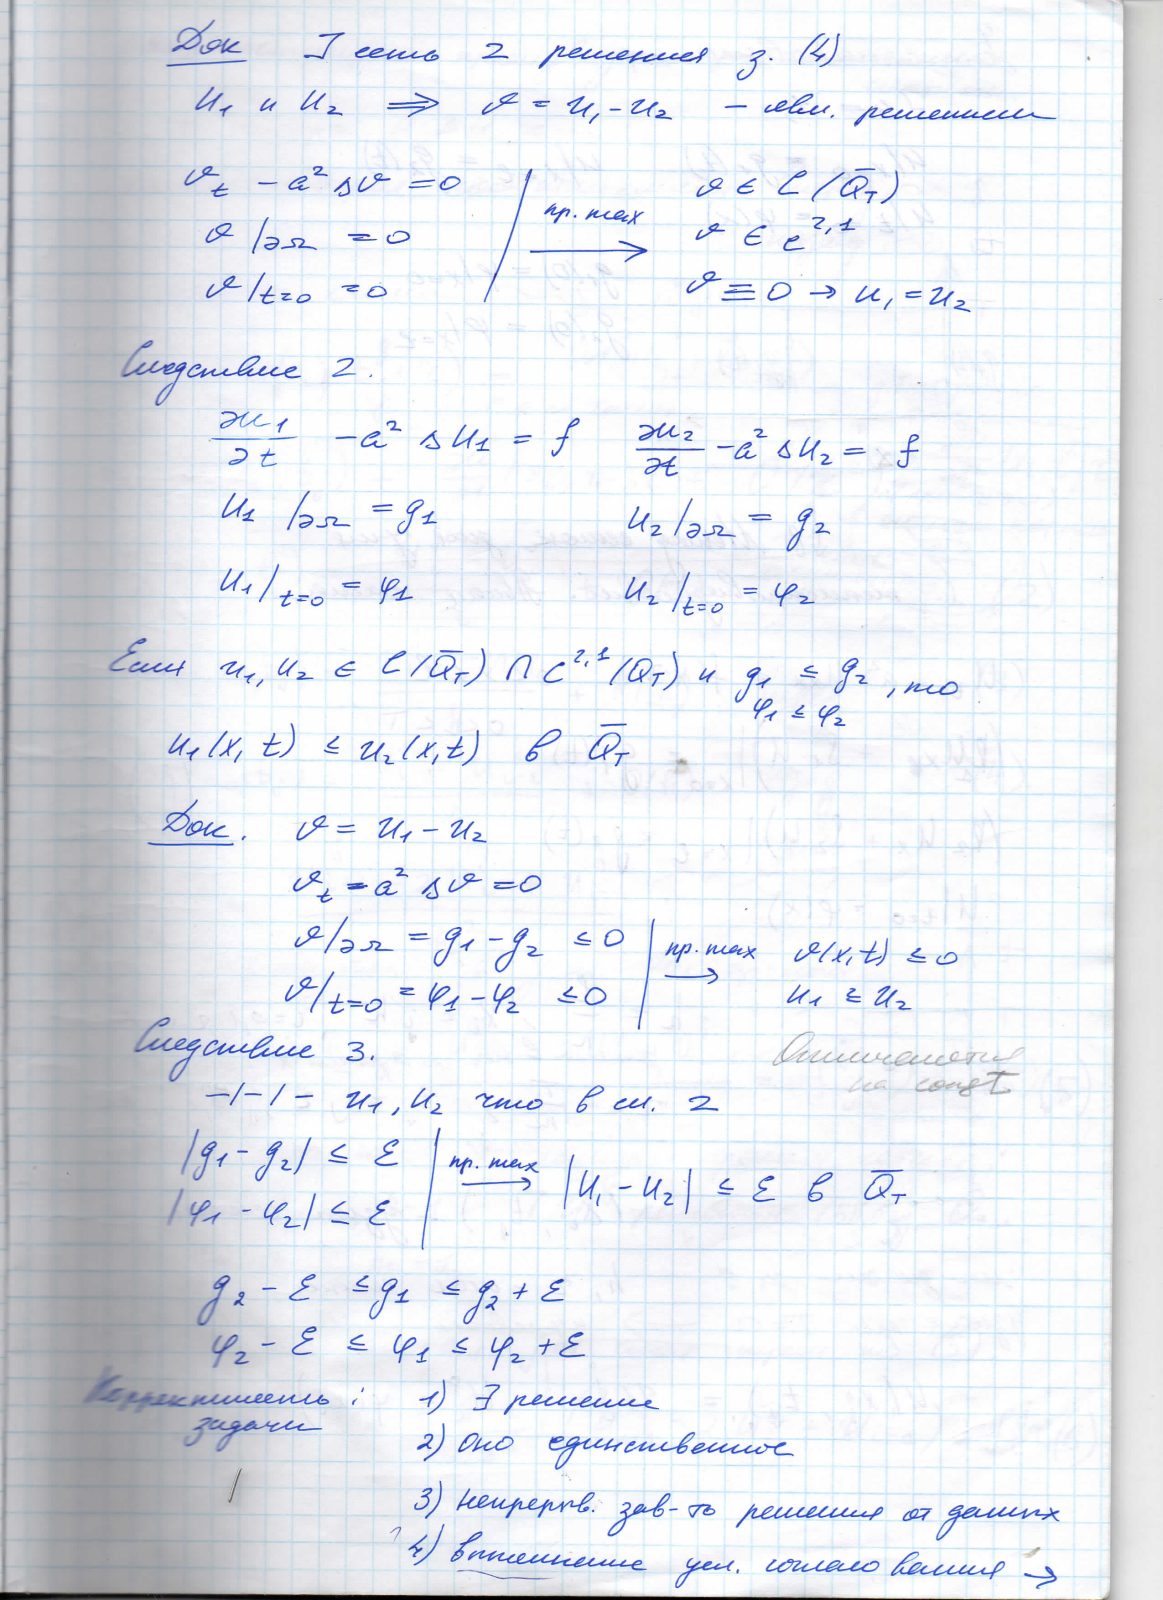 Док ∃ есть 2 решения з. (4)
u₁ и u₂ ⟹ v = u₁ - u₂ - явл. решением
vₜ - a² Δv = 0
v|∂Ω = 0
v|t=0 = 0
пр. max →
v ∈ C(Q̄_T)
v ∈ C²,¹
v ≡ 0 → u₁ = u₂
Следствие 2.
∂u₁/∂t - a² Δu₁ = f ∂u₂/∂t - a² Δu₂ = f
u₁|∂Ω = g₁ u₂|∂Ω = g₂
u₁|t=0 = φ₁ u₂|t=0 = φ₂
Если u₁, u₂ ∈ C(Q̄_T) ∩ C²,¹(Q_T) и g₁ ≤ g₂, то
φ₁ ≤ φ₂
u₁(x, t) ≤ u₂(x, t) в Q̄_T
Док. v = u₁ - u₂
vₜ - a² Δv = 0
v|∂Ω = g₁ - g₂ ≤ 0
v|t=0 = φ₁ - φ₂ ≤ 0
пр. max →
v(x, t) ≤ 0
u₁ ≤ u₂
Следствие 3.
Отличаются
на const
-/-/- u₁, u₂ что в сл. 2
|g₁ - g₂| ≤ ε
|φ₁ - φ₂| ≤ ε
пр. max → |u₁ - u₂| ≤ ε в Q̄_T
g₂ - ε ≤ g₁ ≤ g₂ + ε
φ₂ - ε ≤ φ₁ ≤ φ₂ + ε
Корректность : 1) ∃ решение
задачи
2) оно единственное
3) непрерыв. зав-ть решения от данных
? 4) выполнение усл. согласования →